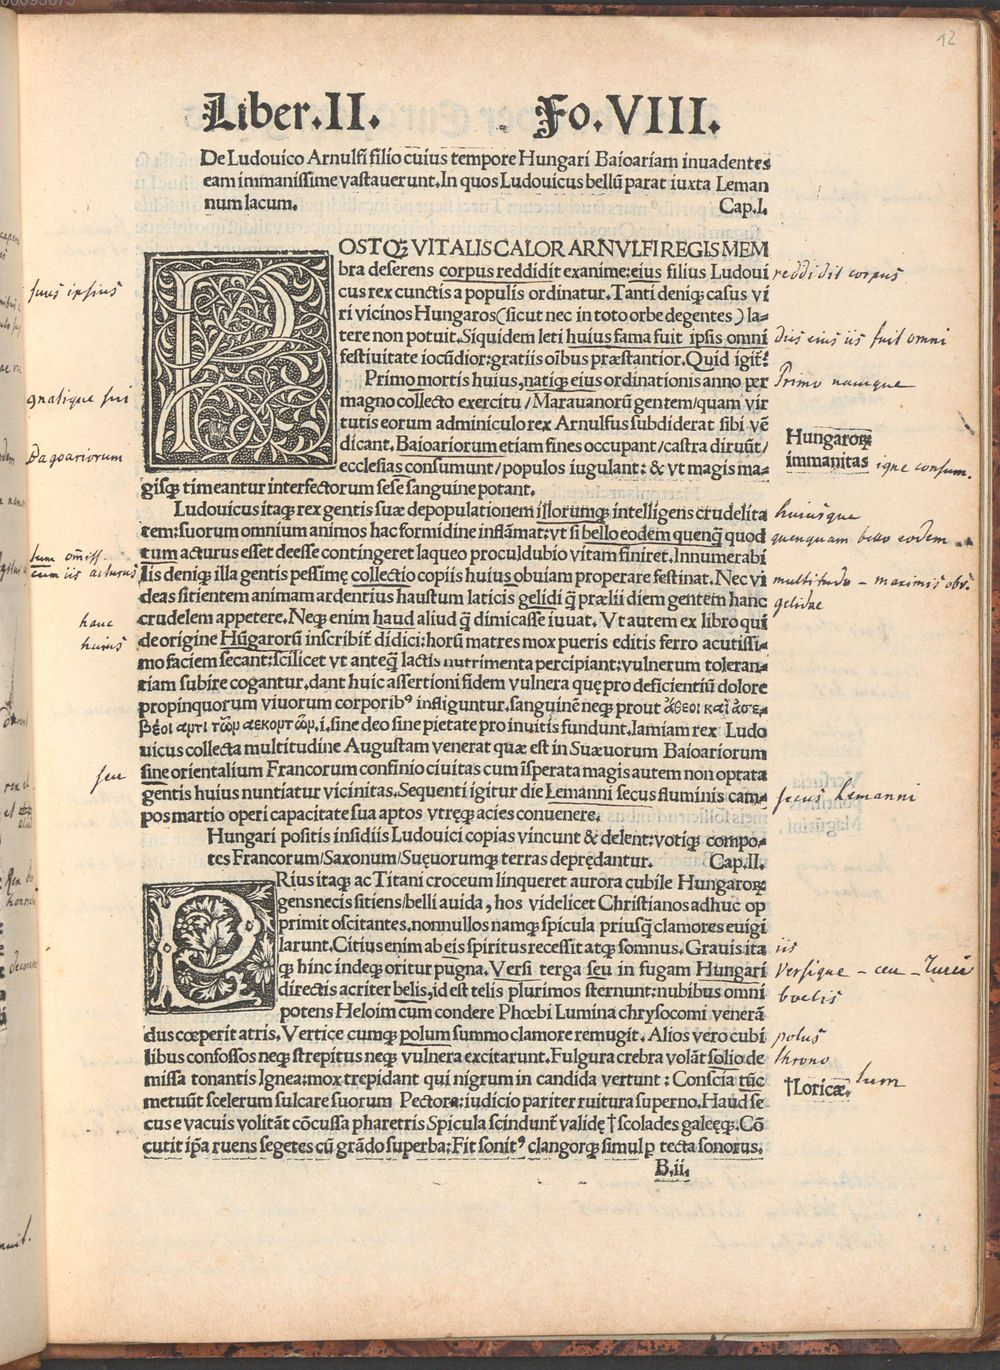 12
Liber.II. Fo.VIII.
De Ludouico Arnulfi filio cuius tempore Hungari Baioariam inuadentes
eam immanissime vastauerunt.In quos Ludouicus bellū parat iuxta Leman
num lacum. Cap.I.
POSTQꝪ VITALIS CALOR ARNVLFI REGIS MEM
bra deserens corpus reddidit exanime:eius filius Ludoui
cus rex cunctis a populis ordinatur.Tanti deniqꝫ casus vi
ri vicinos Hungaros(sicut nec in toto orbe degentes)la⸗
tere non potuit.Siquidem leti huius fama fuit ipsis omni
festiuitate iocūdior:gratiis oībus præstantior.Quid igit̃?
Primo mortis huius,natiqꝫ eius ordinationis anno per
magno collecto exercitu/Marauanorū gentem/quam vir
tutis eorum adminiculo rex Arnulfus subdiderat sibi vē
dicant.Baioariorum etiam fines occupant/castra diruūt/
ecclesias consumunt/populos iugulant:& vt magis ma⸗
gisqꝫ timeantur interfectorum sese sanguine potant.
Ludouicus itaqꝫ rex gentis suæ depopulationem illorumqꝫ intelligens crudelita
tem:suorum omnium animos hac formidine inflāmat:vt si bello eodem quenqꝫ quod
tum acturus esset deesse contingeret laqueo proculdubio vitam finiret.Innumerabi
lis deniqꝫ illa gentis pessimę collectio copiis huius obuiam properare festinat.Nec vi
deas sitientem animam ardentius haustum laticis gelidi q̄ prælii diem gentem hanc
crudelem appetere.Neqꝫ enim haud aliud q̄ dimicasse iuuat.Vt autem ex libro qui
de origine Hūgarorū inscribit̃ didici:horū matres mox pueris editis ferro acutissi⸗
mo faciem secant:scilicet vt anteq̄ lactis nutrimenta percipiant:vulnerum toleran⸗
tiam subire cogantur.dant huic assertioni fidem vulnera quę pro deficientiū dolore
propinquorum viuorum corporibꝰ infliguntur.sanguinē neqꝫ prout ἄθεοι καὶ ἀσε⸗
βέοι αρτι τῶμ αεκουτῶμ.i.sine deo sine pietate pro inuitis fundunt.Iamiam rex Ludo
uicus collecta multitudine Augustam venerat quæ est in Suæuorum Baioariorum
sine orientalium Francorum confinio ciuitas cum īsperata magis autem non optata
gentis huius nuntiatur vicinitas.Sequenti igitur die Lemanni secus fluminis cam⸗
pos martio operi capacitate sua aptos vtręqꝫ acies conuenere.
Hungari positis insidiis Ludouici copias vincunt & delent:votiqꝫ compo⸗
tes Francorum/Saxonum/Suęuorumqꝫ terras deprędantur. Cap.II.
PRius itaqꝫ ac Titani croceum linqueret aurora cubile Hungarorꝝ
gens necis sitiens/belli auida, hos videlicet Christianos adhuc op
primit oscitantes.nonnullos namqꝫ spicula priusq̄ clamores euigi
larunt.Citius enim ab eis spiritus recessit atqꝫ somnus.Grauis ita
qꝫ hinc indeqꝫ oritur pugna.Versi terga seu in fugam Hungari
directis acriter belis,id est telis plurimos sternunt:nubibus omni
potens Heloim cum condere Phœbi Lumina chrysocomi venerā
dus cœperit atris.Vertice cumqꝫ polum summo clamore remugit.Alios vero cubi
libus confossos neqꝫ strepitus neqꝫ vulnera excitarunt.Fulgura crebra volāt solio de
missa tonantis Ignea:mox trepidant qui nigrum in candida vertunt:Conscia tūc
metuūt scelerum sulcare suorum Pectora:iudicio pariter ruitura superno.Haud se
cus e vacuis volitāt cōcussa pharetris Spicula scindunt̃ validę †scolades galeęqꝫ.Cō
cutit ip̄a ruens segetes cū grādo superba:Fit sonitꝰ clangorqꝫ simul ꝑ tecta sonorus.
B.ii.
Hungarorꝝ
immanitas
†Loricæ.
suus ipsius
gnatique sui
Bagoariorum
tum omiss.
cum iis acturus
hanc
huius
seu
reddidit corpus
diis eius iis fuit omni
Primo namque
igne consum.
huiusque
quenquam bello eodem
multitudo – maximis obv.
gelidae
secus Lemanni
iis
Versique – ceu – Turci
boelis
polus
throno
tum